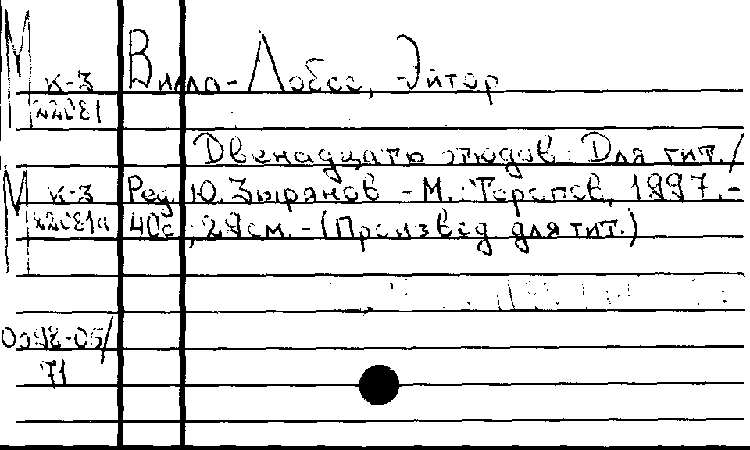 М к-3 Вилла-Лобос, Эйтор
22081
Двенадцать этюдов: Для гит./
М к-3 Ред. Ю. Зырянов - М.: Торопов, 1997.-
22081а 40с.; 29см. - (Произвед. для гит.)
71